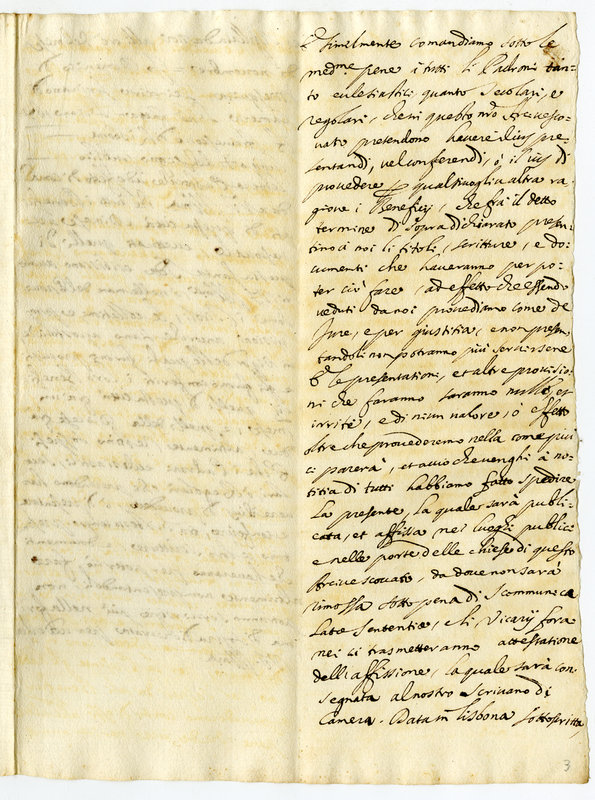 E similmente comandiamo sotto le
med.me pene à tutti li Padroni tan=
to ecclesiastici, quanto secolari, e
regolari, che in questo nro Arcivesco=
vato pretendono havere ius pre=
sentandi, vel conferendi, ò il ius di
provedere p qualsivoglia altra ra=
gione i Beneficij, che frà il detto
termine di sopra dichiarato presen=
tino à noi li titoli, scritture, e do=
cumenti che haveranno per po=
ter ciò fare, ad effetto che essendo
veduti da noi provediamo come de
Jure, e per giustitia, e non presen
tandoli non potranno più servirsene
le presentationi, et altre provisio=
ni che faranno saranno nulle, et
irrite, e di niun valore, ò effetto
oltre che provederemo nella come più
ci parerà, et acciò che venghi à no=
titia di tutti habbiamo fatto spedire
la presente, la quale sarà publi=
cata, et affissa nei luoghi publici
e nelle porte delle chiese di questo
Arcivescovato, da dove non sarà
rimossa sotto pena di scommunica
latæ sententiæ, e li Vicarij fora
nei ci trasmetteranno attestatione
dell'affissione, la quale sarà con
segnata al nostro scrivano di
Camera. Data in Lisbona sottoscritta,
3